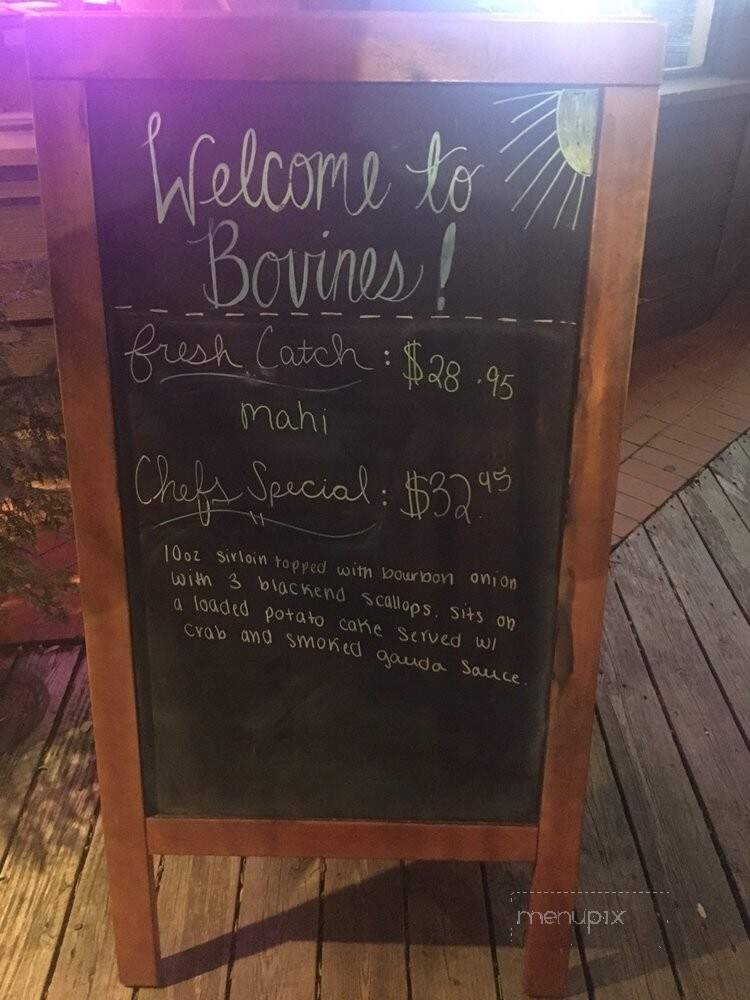 Welcome to
Bovines!
fresh Catch: $28.95
mahi
Chefs Special: $32.95
10oz sirloin topped with bourbon onion
with 3 blackend scallops. sits on
a loaded potato cake served w/
crab and smoked gauda sauce.
menupix